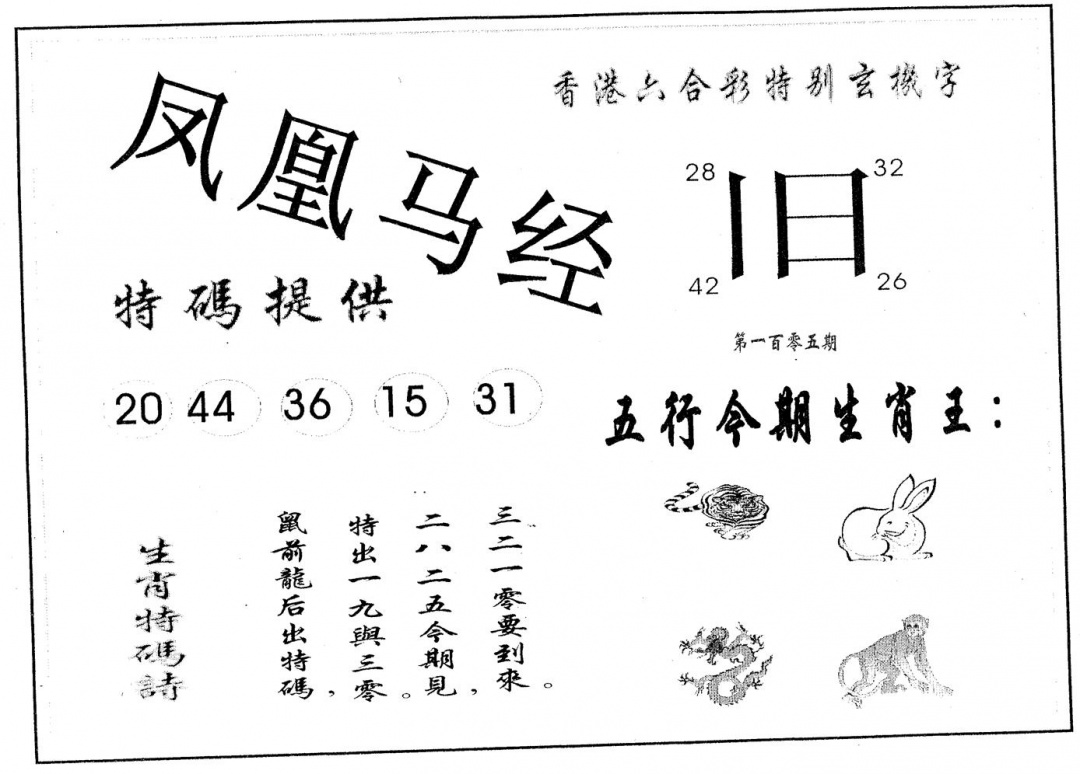 凤凰马经
特碼提供
20 44 36 15 31
香港六合彩特别玄機字
28 32
旧
42 26
第一百零五期
五行今期生肖王：
生肖特碼詩
鼠前龍后出特碼，
特出一九與三零。
二八二五今期見，
三二一零要到來。